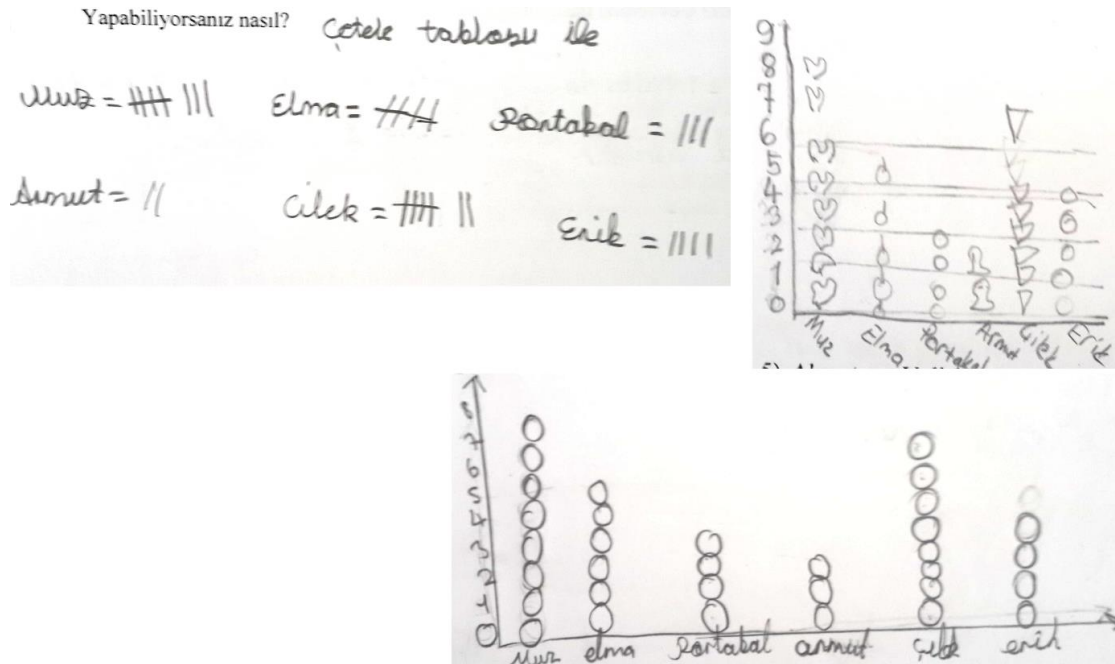 Yapabiliyorsanız nasıl? Çetele tablosu ile
Muz = 卌 ||| Elma = 卌 Portakal = |||
Armut = || Çilek = 卌 || Erik = ||||
9
8
7
6
5
4
3
2
1
0
Muz Elma Portakal Armut Çilek Erik
8
7
6
5
4
3
2
1
0
Muz elma Portakal armut Çilek erik